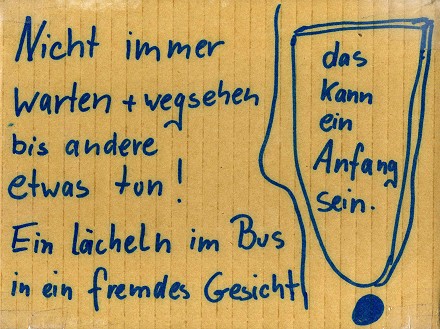 Nicht immer
warten + wegsehen
bis andere
etwas tun!
Ein lächeln im Bus
in ein fremdes Gesicht
das
kann
ein
Anfang
sein.